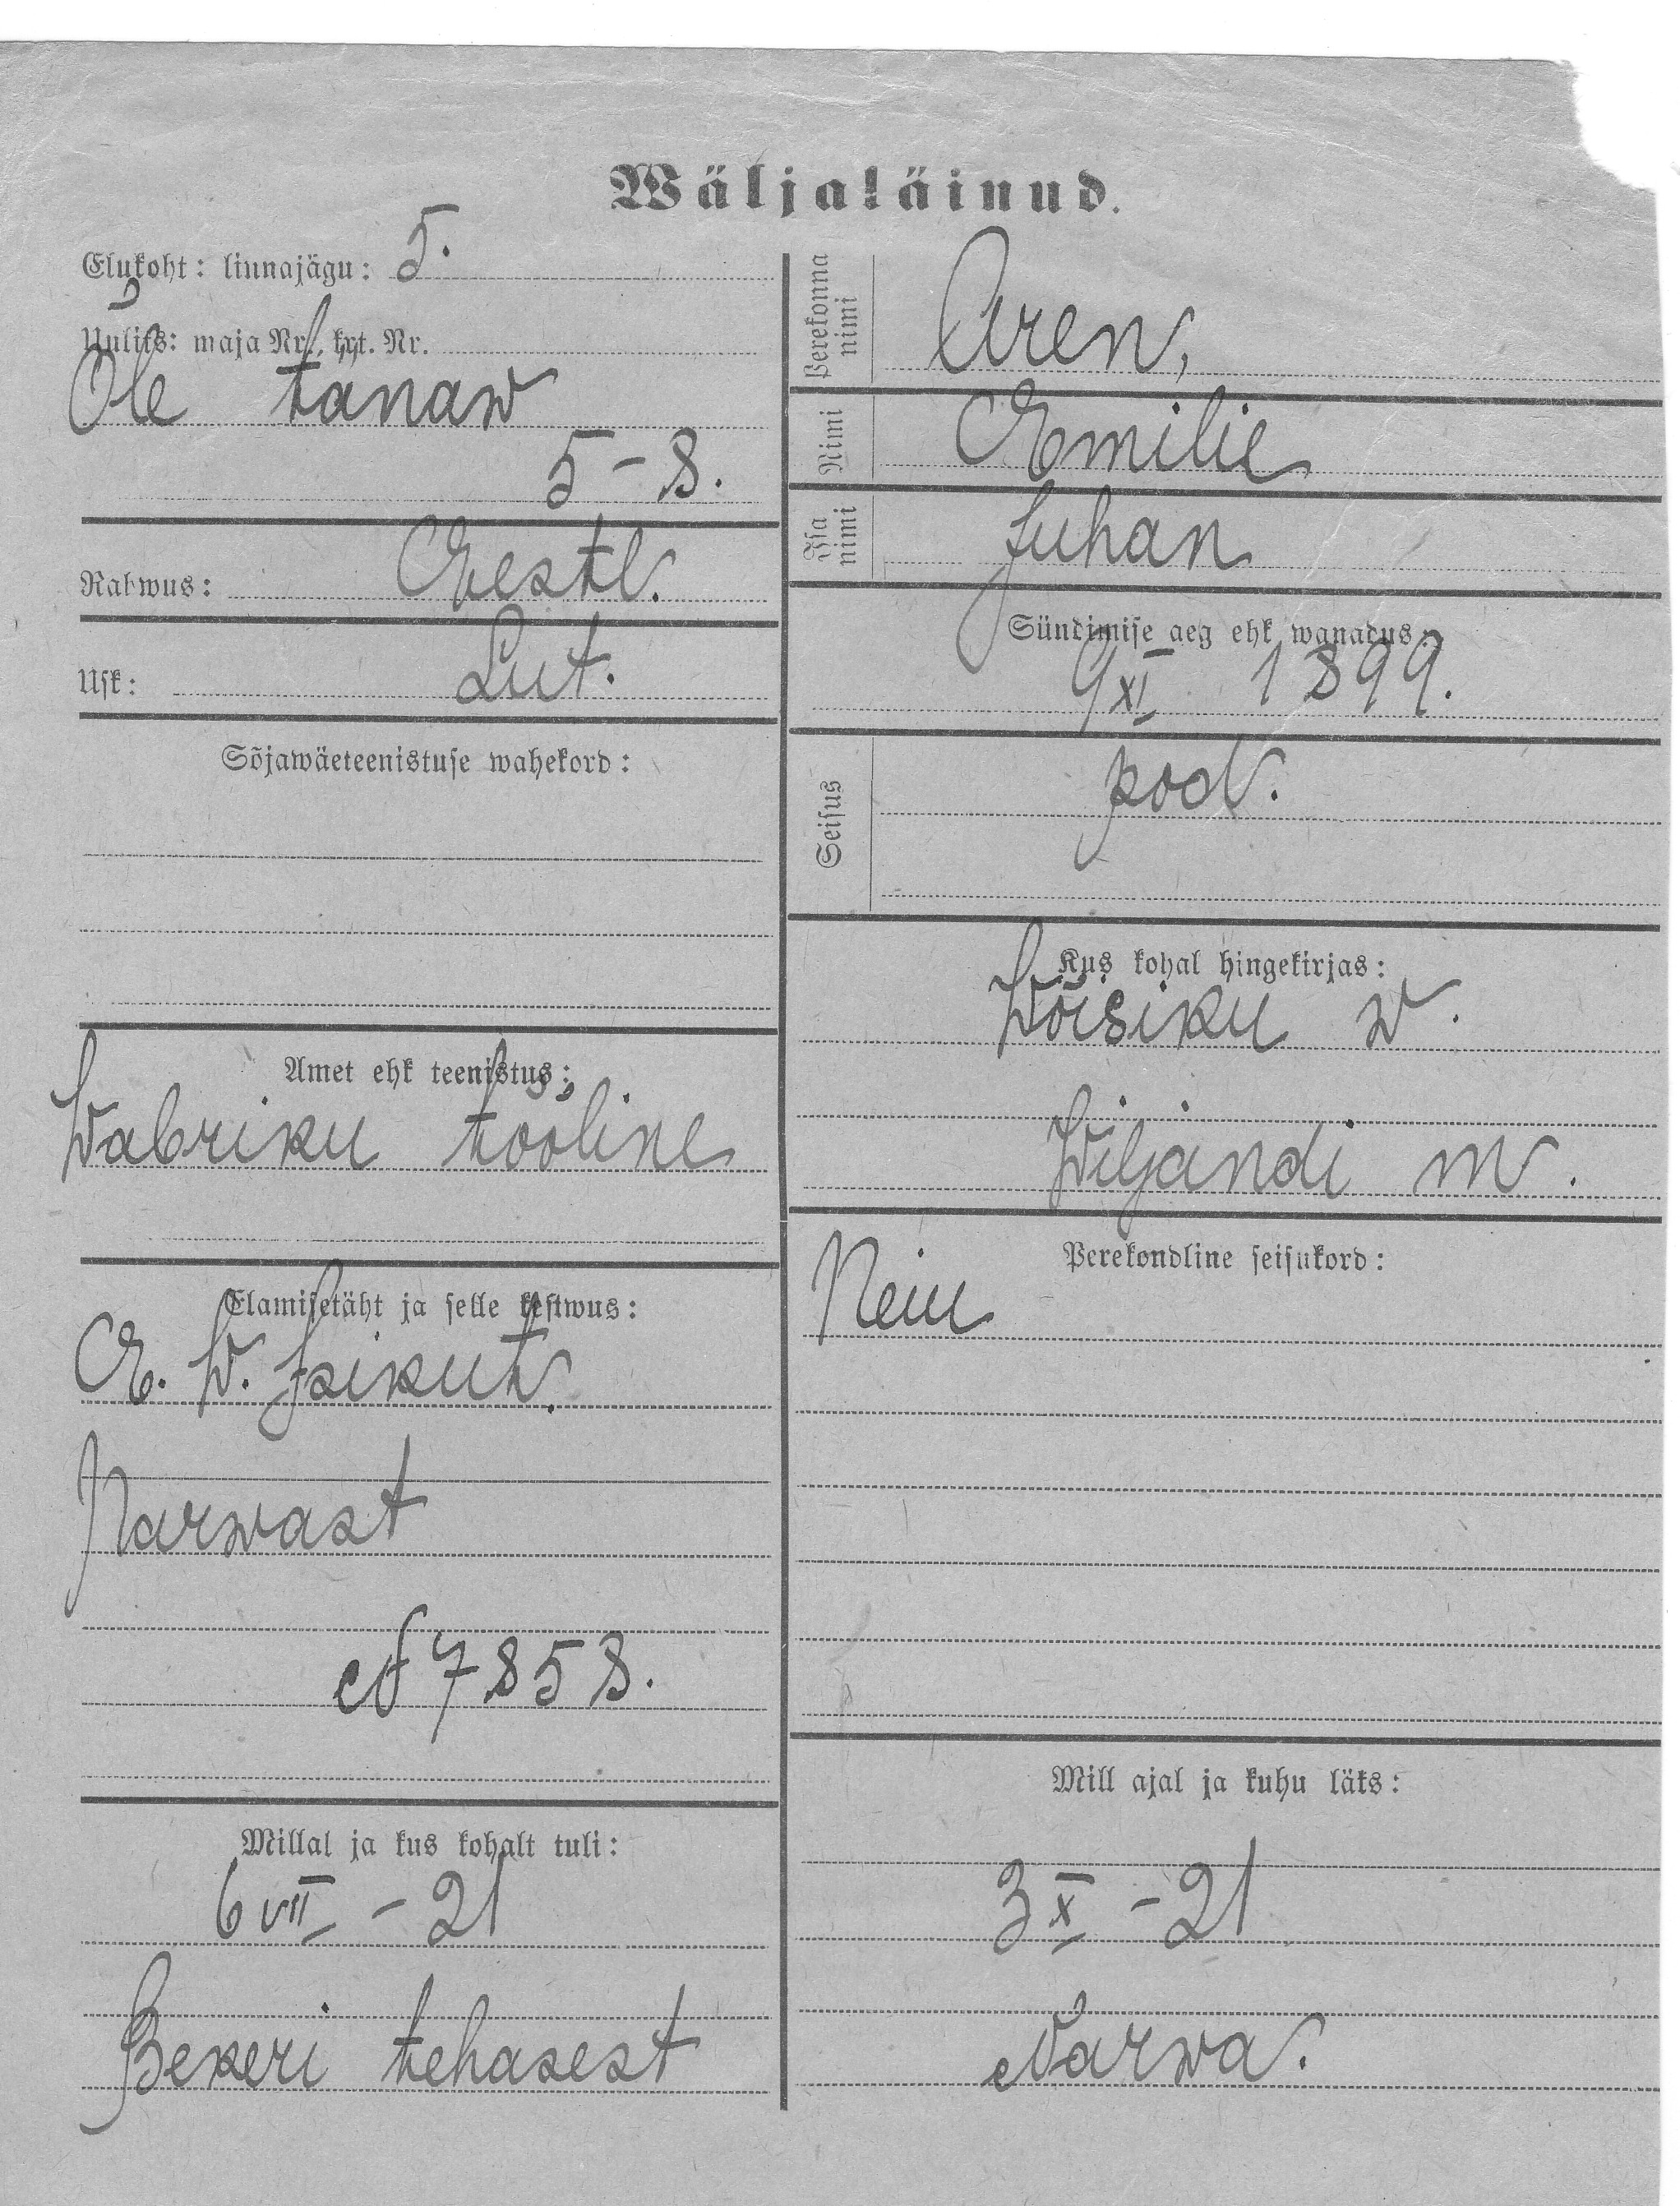 Wäljaläinud.
Elukoht: linnajägu: 5.
Uulits: maja Nr., krt. Nr.
Õle tänaw
5-8.
Rahwus: Eestl.
Usk: Lut.
Sõjawäeteenistuse wahekord:
Amet ehk teenistus:
Wabriku tööline
Elamisetäht ja selle kestwus:
E. W. Isikut.
Narwast
N 7858.
Millal ja kus kohalt tuli:
6 VII - 21
Bekeri tehasest
Perekonna nimi
Aren,
Nimi
Emilie
Isa nimi
Juhan
Sündimise aeg ehk wanadus:
9 XI 1899.
Seisus
pod.
Kus kohal hingekirjas:
Wõisiku w.
Wiljandi m.
Perekondline seisukord:
Neiu
Mill ajal ja kuhu läks:
3 X - 21
Narva.